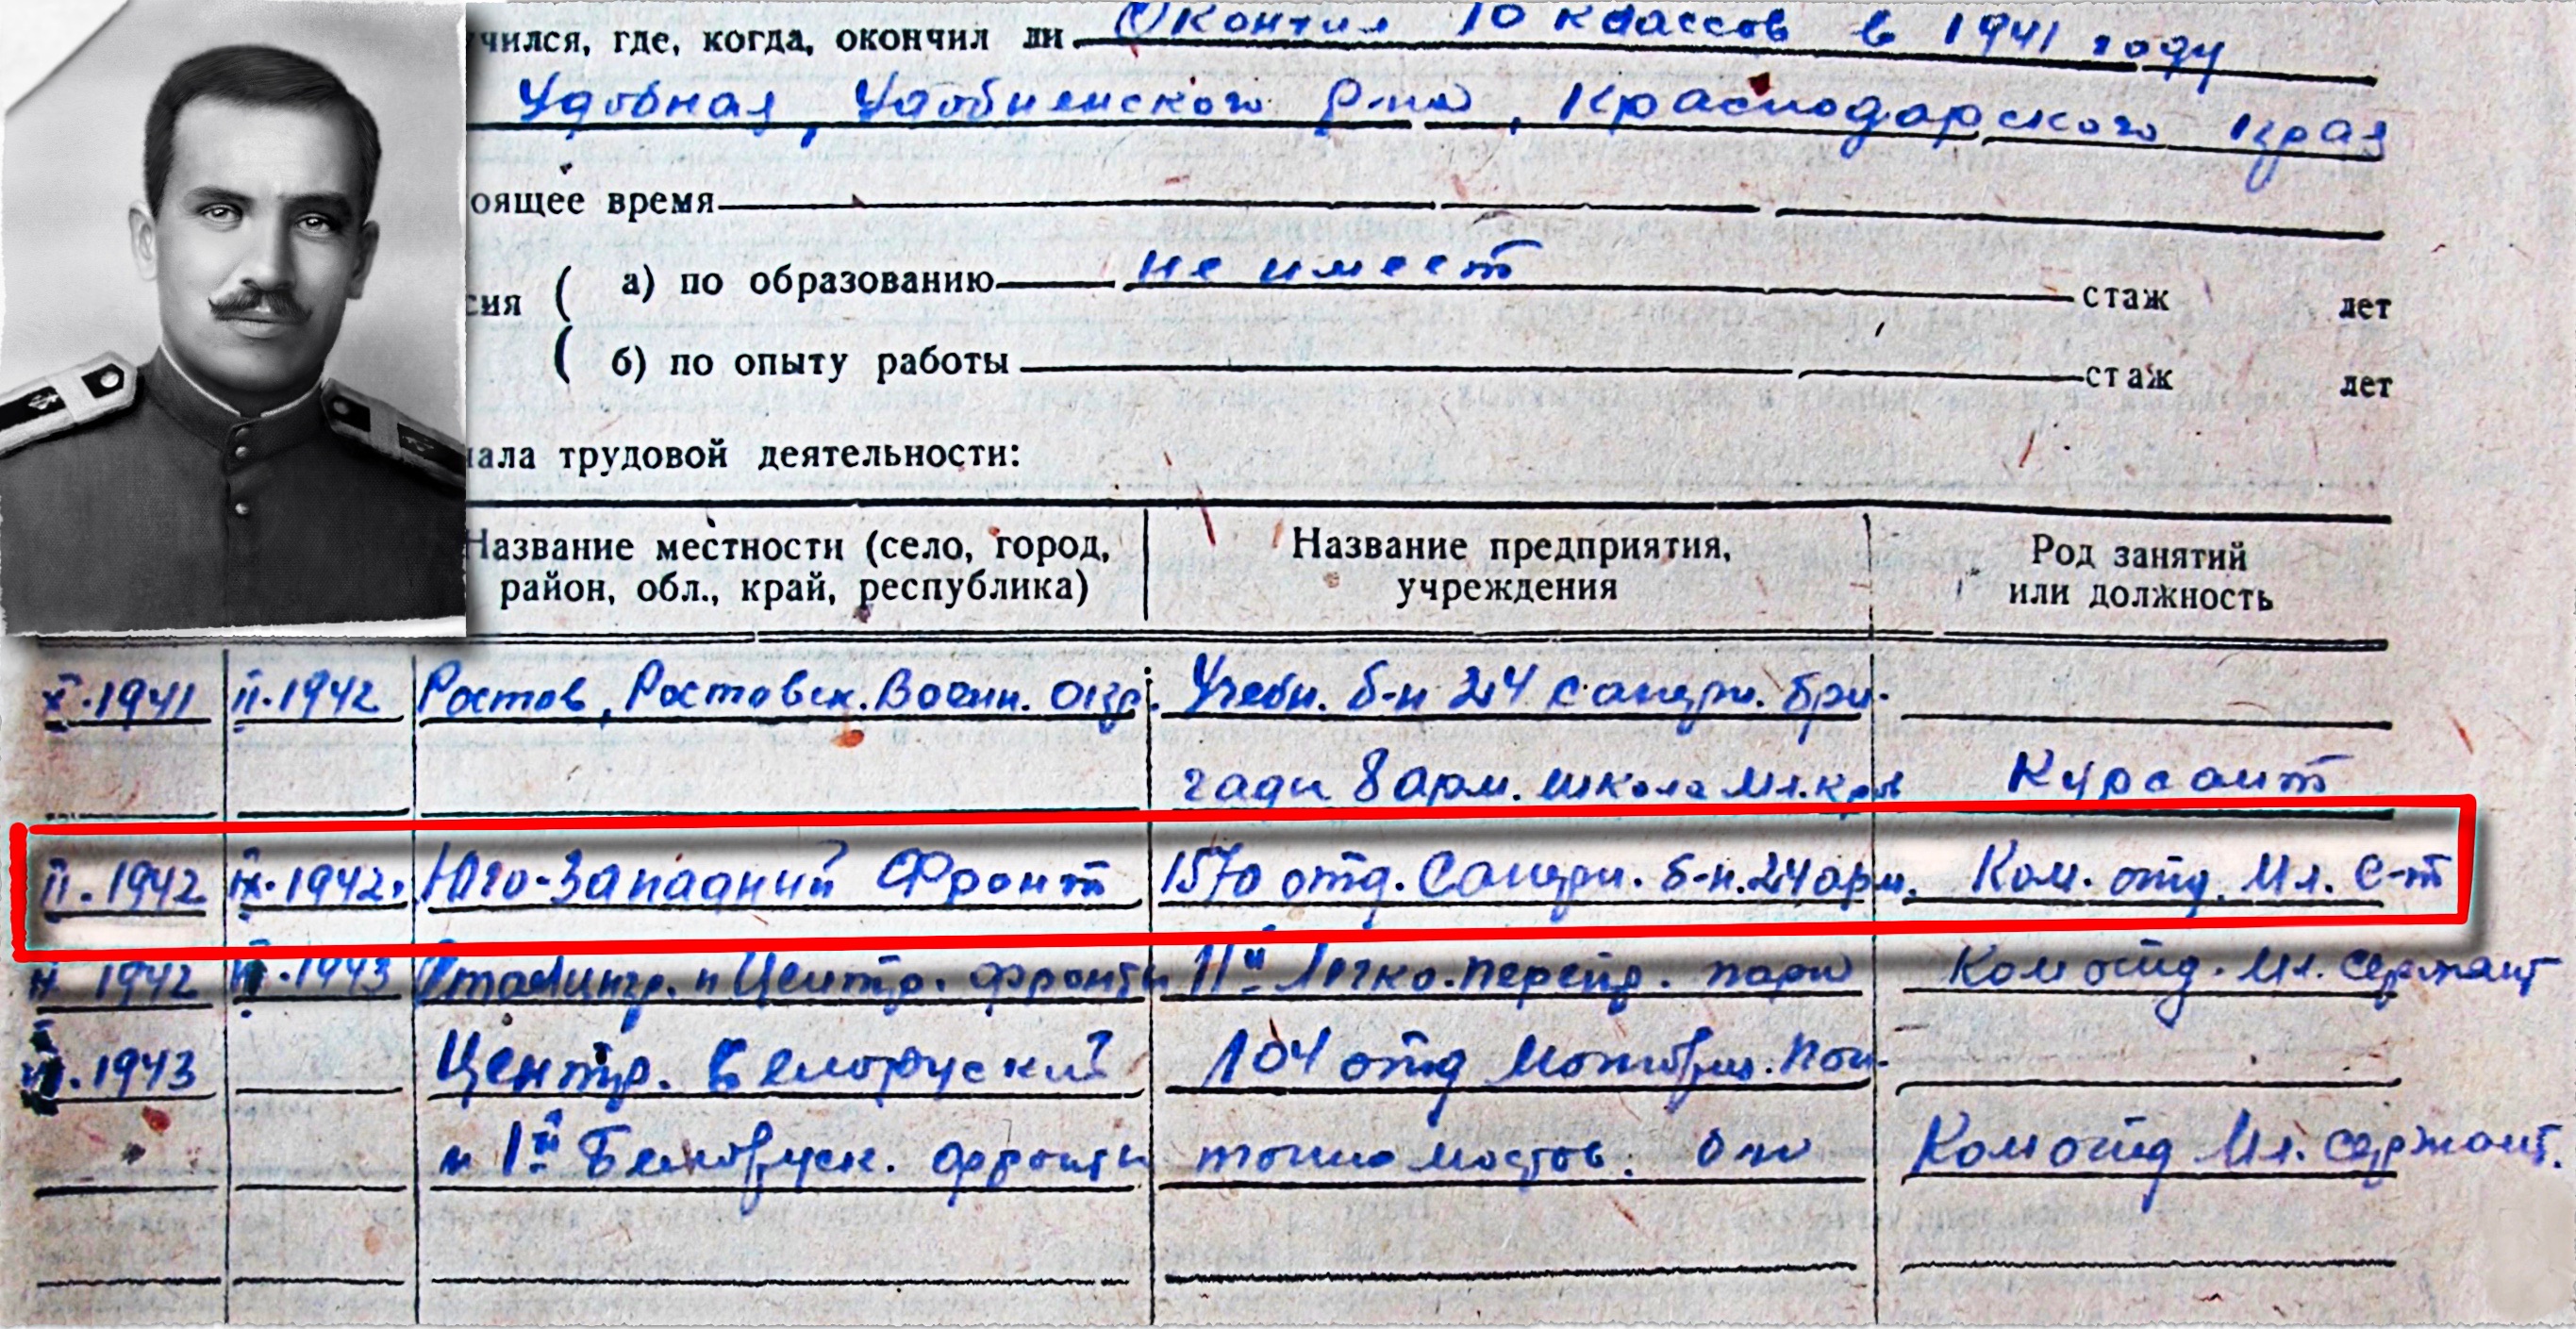 чился, где, когда, окончил ли Окончил 10 классов в 1941 году
Удобная, Удобненского р-на, Краснодарского края
оящее время
сия ( а) по образованию не имеет стаж лет
( б) по опыту работы стаж лет
ала трудовой деятельности:
Название местности (село, город, район, обл., край, республика) Название предприятия, учреждения Род занятий или должность
X.1941 II.1942 Ростов, Ростовск. Воен. Окр. Учебн. б-н 24 саперн. бри-
гады 8 арм. школа мл. ком Курсант
II.1942 IX.1942. Юго-Западный Фронт 1570 отд. Саперн. б-н. 24 арм. Ком. отд. Мл. С-т
1942 .1943 Сталингр. и Центр. фронты 11й Легко. перепр. парк Ком отд. Мл. сержант
.1943 Центр. Белоруский 104 отд Моторизов. пон-
и 1й Белоруск. фронты тонно мостов. б-н Ком отд Мл. сержант.